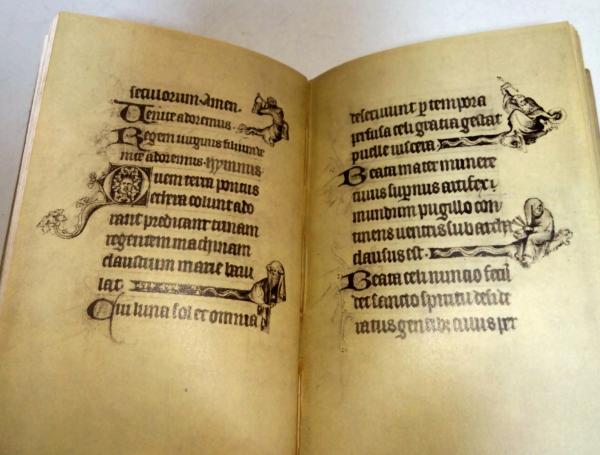 seculorum. Amen.
Uenite adoremus.
Regem uirginis filium ue
nite adoremus. ympnus
Quem terra pontus
ethera colunt ado
rant predicant trinam
regentem machinam
claustrum marie baiu
lat.
Cui luna sol et omnia
deseruiunt p tempora
perfusa celi gratia gestat
puelle uiscera.
Beata mater munere
cuius supnus artifex
mundum pugillo con
tinens uentris sub archa
clausus est.
Beata celi nuncio fecu
det sancto spiritu deside
ratus gentib cuius per